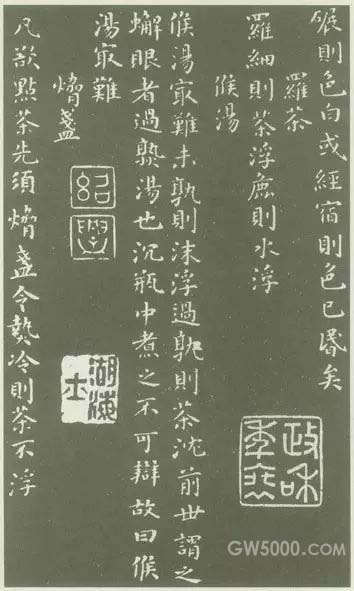 碾則色白或經宿則色已昬矣
羅茶
羅細則茶浮麁則水浮
候湯
候湯冣難未熟則沫浮過熟則茶沈前世謂之
蠏眼者過熟湯也沉瓶中煮之不可辯故曰候
湯冣難
熁盞
凡欲點茶先須熁盞令熱冷則茶不浮
紹興
政和
GW5000.COM